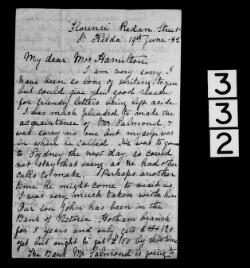 Florence Redan Street
St Kilda 19th June 92
My dear Mrs Hamilton,
I am very sorry I
have been so long of writing to you
but could give you good reason
for friendly letters being left aside.
I was much pleased to make the
acquaintance of Mr Salmond, &
was sorry no one but myself was
in when he called. He was to go
to Sydney the next day, so could
not stay that long as he had other
calls to make. Perhaps another
time he might come to meet us.
I was very much taken with him
Our son John has been in the
Bank of Victoria Hotham branch
for 5 years and only gets £120.
yet but ought to get £150 by this time
The Bank Mr Salmond is going to
332